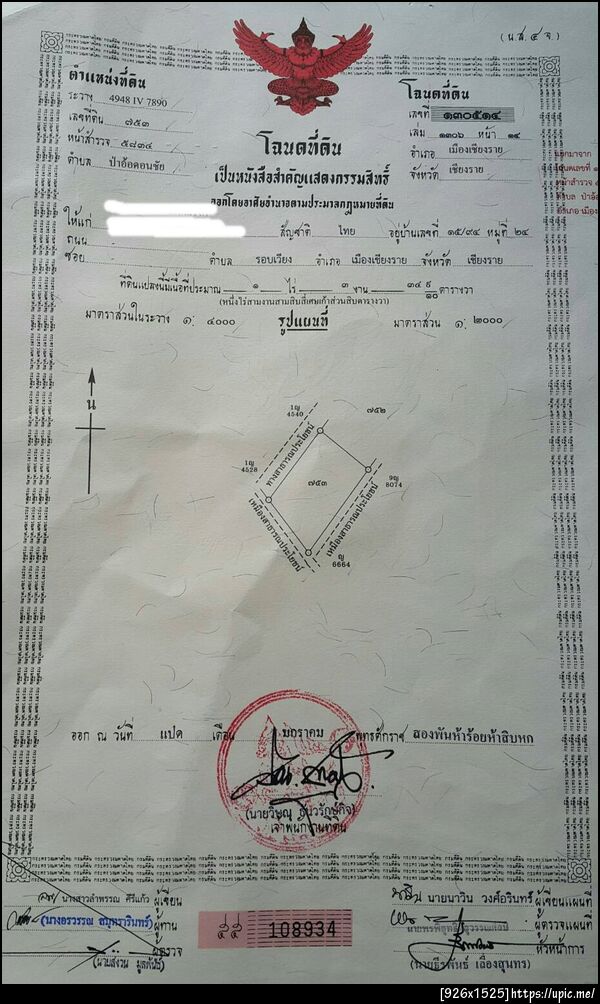 (น.ส.๔ จ.)
ตำแหน่งที่ดิน
ระวาง 4948 IV 7890
เลขที่ดิน ๗๕๓
หน้าสำรวจ ๕๘๓๔
ตำบล ป่าอ้อดอนชัย
โฉนดที่ดิน
เลขที่ ๑๓๐๕๑๔
เล่ม ๑๓๐๖ หน้า ๑๔
อำเภอ เมืองเชียงราย
จังหวัด เชียงราย
โฉนดที่ดิน
เป็นหนังสือสำคัญแสดงกรรมสิทธิ์
ออกโดยอาศัยอำนาจตามประมวลกฎหมายที่ดิน
ให้แก่ สัญชาติ ไทย อยู่บ้านเลขที่ ๑๕/๙๔ หมู่ที่ ๒๔
ถนน
ซอย ตำบล รอบเวียง อำเภอ เมืองเชียงราย จังหวัด เชียงราย
ที่ดินแปลงนี้มีเนื้อที่ประมาณ ๑ ไร่ ๓ งาน ๓๔ ๙/๑๐ ตารางวา
(หนึ่งไร่สามงานสามสิบสี่เศษเก้าส่วนสิบตารางวา)
มาตราส่วนในระวาง ๑: ๔๐๐๐ รูปแผนที่ มาตราส่วน ๑: ๒๐๐๐
น
1ญ
4540
๗๕๒
ทางสาธารณประโยชน์
1ญ
4528
๗๕๓
9ญ
8074
เหมืองสาธารณประโยชน์
เหมืองสาธารณประโยชน์
ญ
6664
ออก ณ วันที่ แปด เดือน มกราคม พุทธศักราช สองพันห้าร้อยห้าสิบหก
เจ้าพนักงานที่ดิน
นางสาวลำพรรณ ศิริแก้ว ผู้เขียน
(นางอรวรรณ สมุทรารินทร์) ผู้ทาน
ผู้ตรวจ
๕๕ 108934
นายนาวิน วงศ์อรินทร์ ผู้เขียนแผนที่
ผู้ตรวจแผนที่
หัวหน้าการ
(นายธีรพันธ์ เลื่องสุนทร)
[926x1525]https://upic.me/